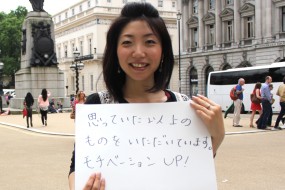 思っていた以上の
ものをいただいています。
モチベーション UP!